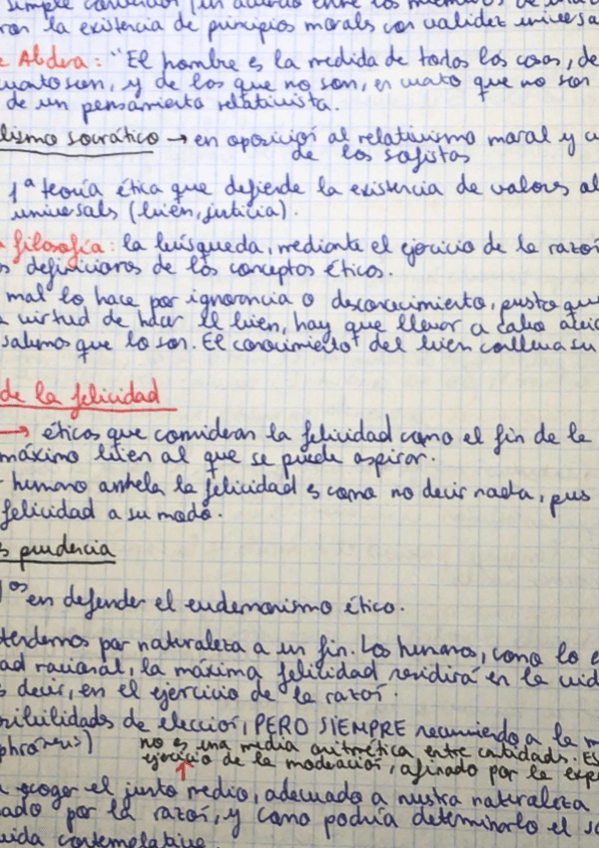 simple convención (un acuerdo entre los miembros de una
ran la existencia de principios morals con validez universa
e Abdera: "El hombre es la medida de todas las cosas, de
cuanto son, y de los que no son, en cuato que no son
de un pensamiento relativista.
lismo socrático → en oposición al relativismo moral y
de los sofistas
1ª teoría ética que defiende la existencia de valores
universals (bien, justicia).
filosofía: la búsqueda, mediante el ejercicio de la razón
s definiciones de los conceptos éticos.
mal lo hace por ignorancia o desconocimiento, pusto que
a virtud de hacer el bien, hay que llevar a cabo
sabemos que lo son. El conocimiento del bien conlleva su
de la felicidad
→ éticas que consideran la felicidad como el fin de la
máximo bien al que se puede aspirar.
humano anhela la felicidad es como no decir nada, pus
felicidad a su modo.
s prudencia
1os en defender el eudemonismo ético.
tendemos por naturaleza a un fin. Los humanos, como lo e
ad racional, la máxima felicidad residirá en la vid
s decir, en el ejercicio de la razón.
sibilidades de elección, PERO SIEMPRE recurriendo a la m
phronesis) no es una media aritmética entre cantidades. Es
ejercicio de la moderación, afinado por la expe
a escoger el justo medio, adecuado a nustra naturaleza
ado por la razón, y como podría determinarlo el s
vida contemplativa.